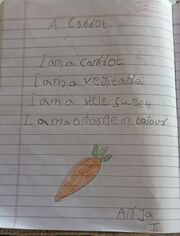 A Carrot
I am a carrot
I am a vegitable
I am a little sweet
I am a orange in colour
Anya
I